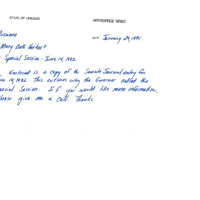 STATE OF OREGON
INTEROFFICE MEMO
DATE: January 29, 1991
Mary Beth Herkert
Special Session - June 14, 1982
Enclosed is a copy of the Senate Journal entry for
14, 1982. This outlines why the Governor called the
Special Session. If you would like more information,
please give me a call. Thanks